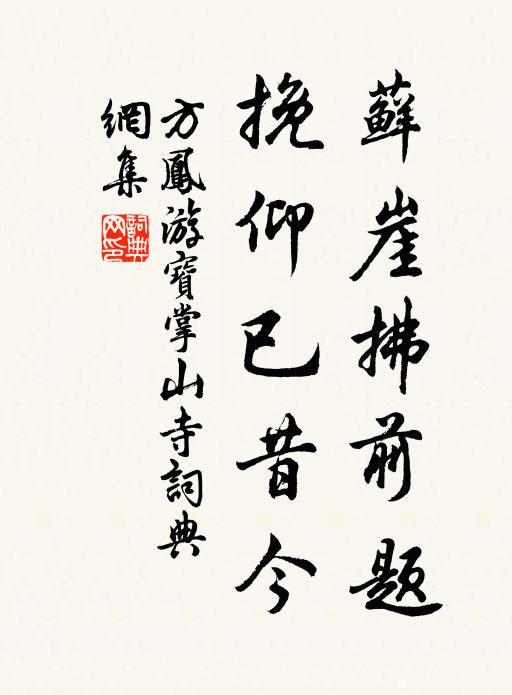 藓崖拂前题
挽仰已昔今
方鳳游寶掌山寺詞典
網集
詞典
网印